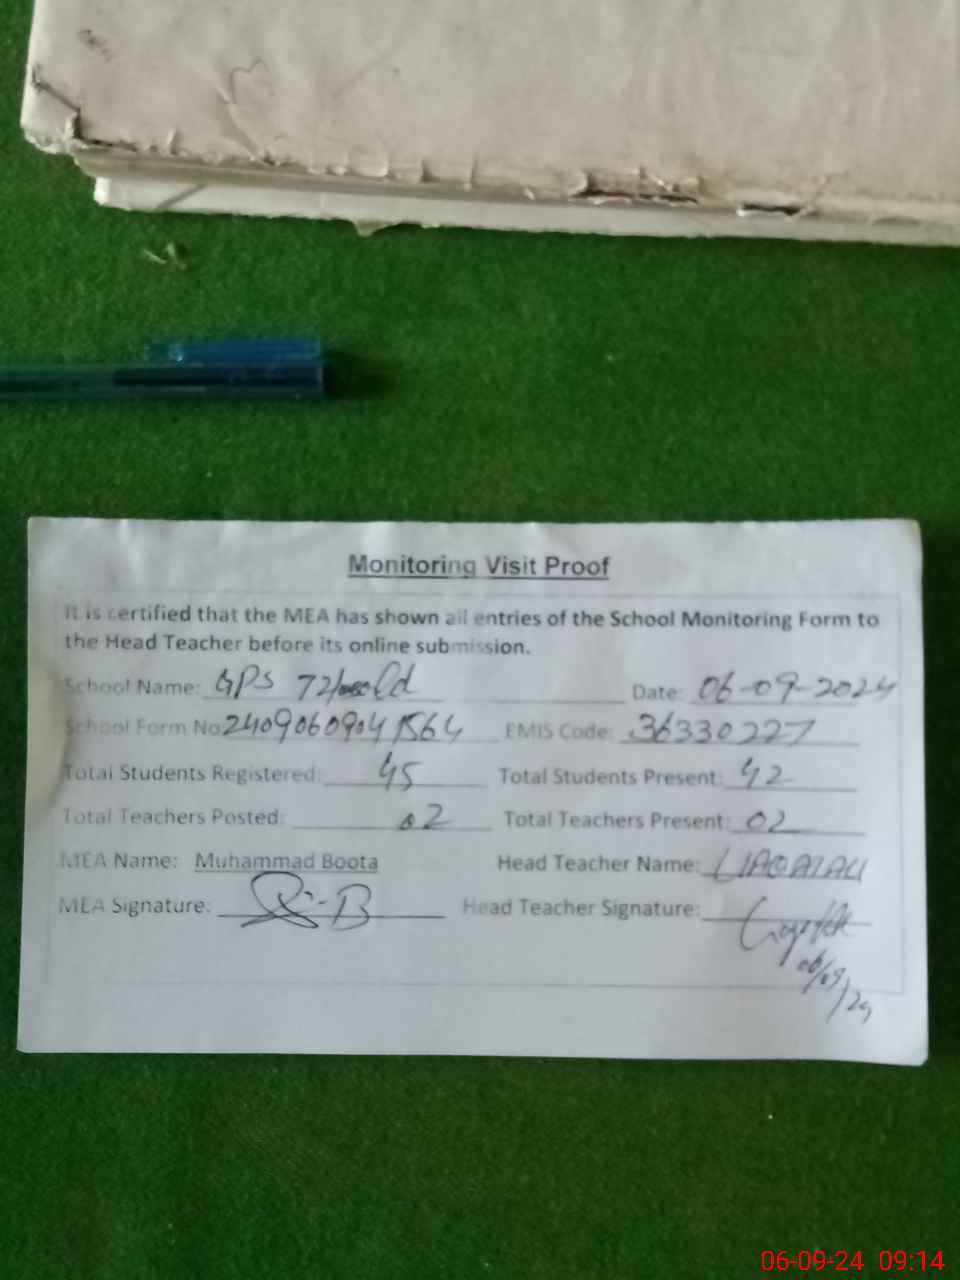 Monitoring Visit Proof
It is certified that the MEA has shown all entries of the School Monitoring Form to
the Head Teacher before its online submission.
School Name: GPS 72/ Date: 06-09-2024
School Form No 24090609041564 EMIS Code: 36330227
Total Students Registered: 45 Total Students Present: 42
Total Teachers Posted: 02 Total Teachers Present: 02
MEA Name: Muhammad Boota Head Teacher Name: LIAQAT ALI
MEA Signature: Head Teacher Signature:
06/09/24
06-09-24 09:14